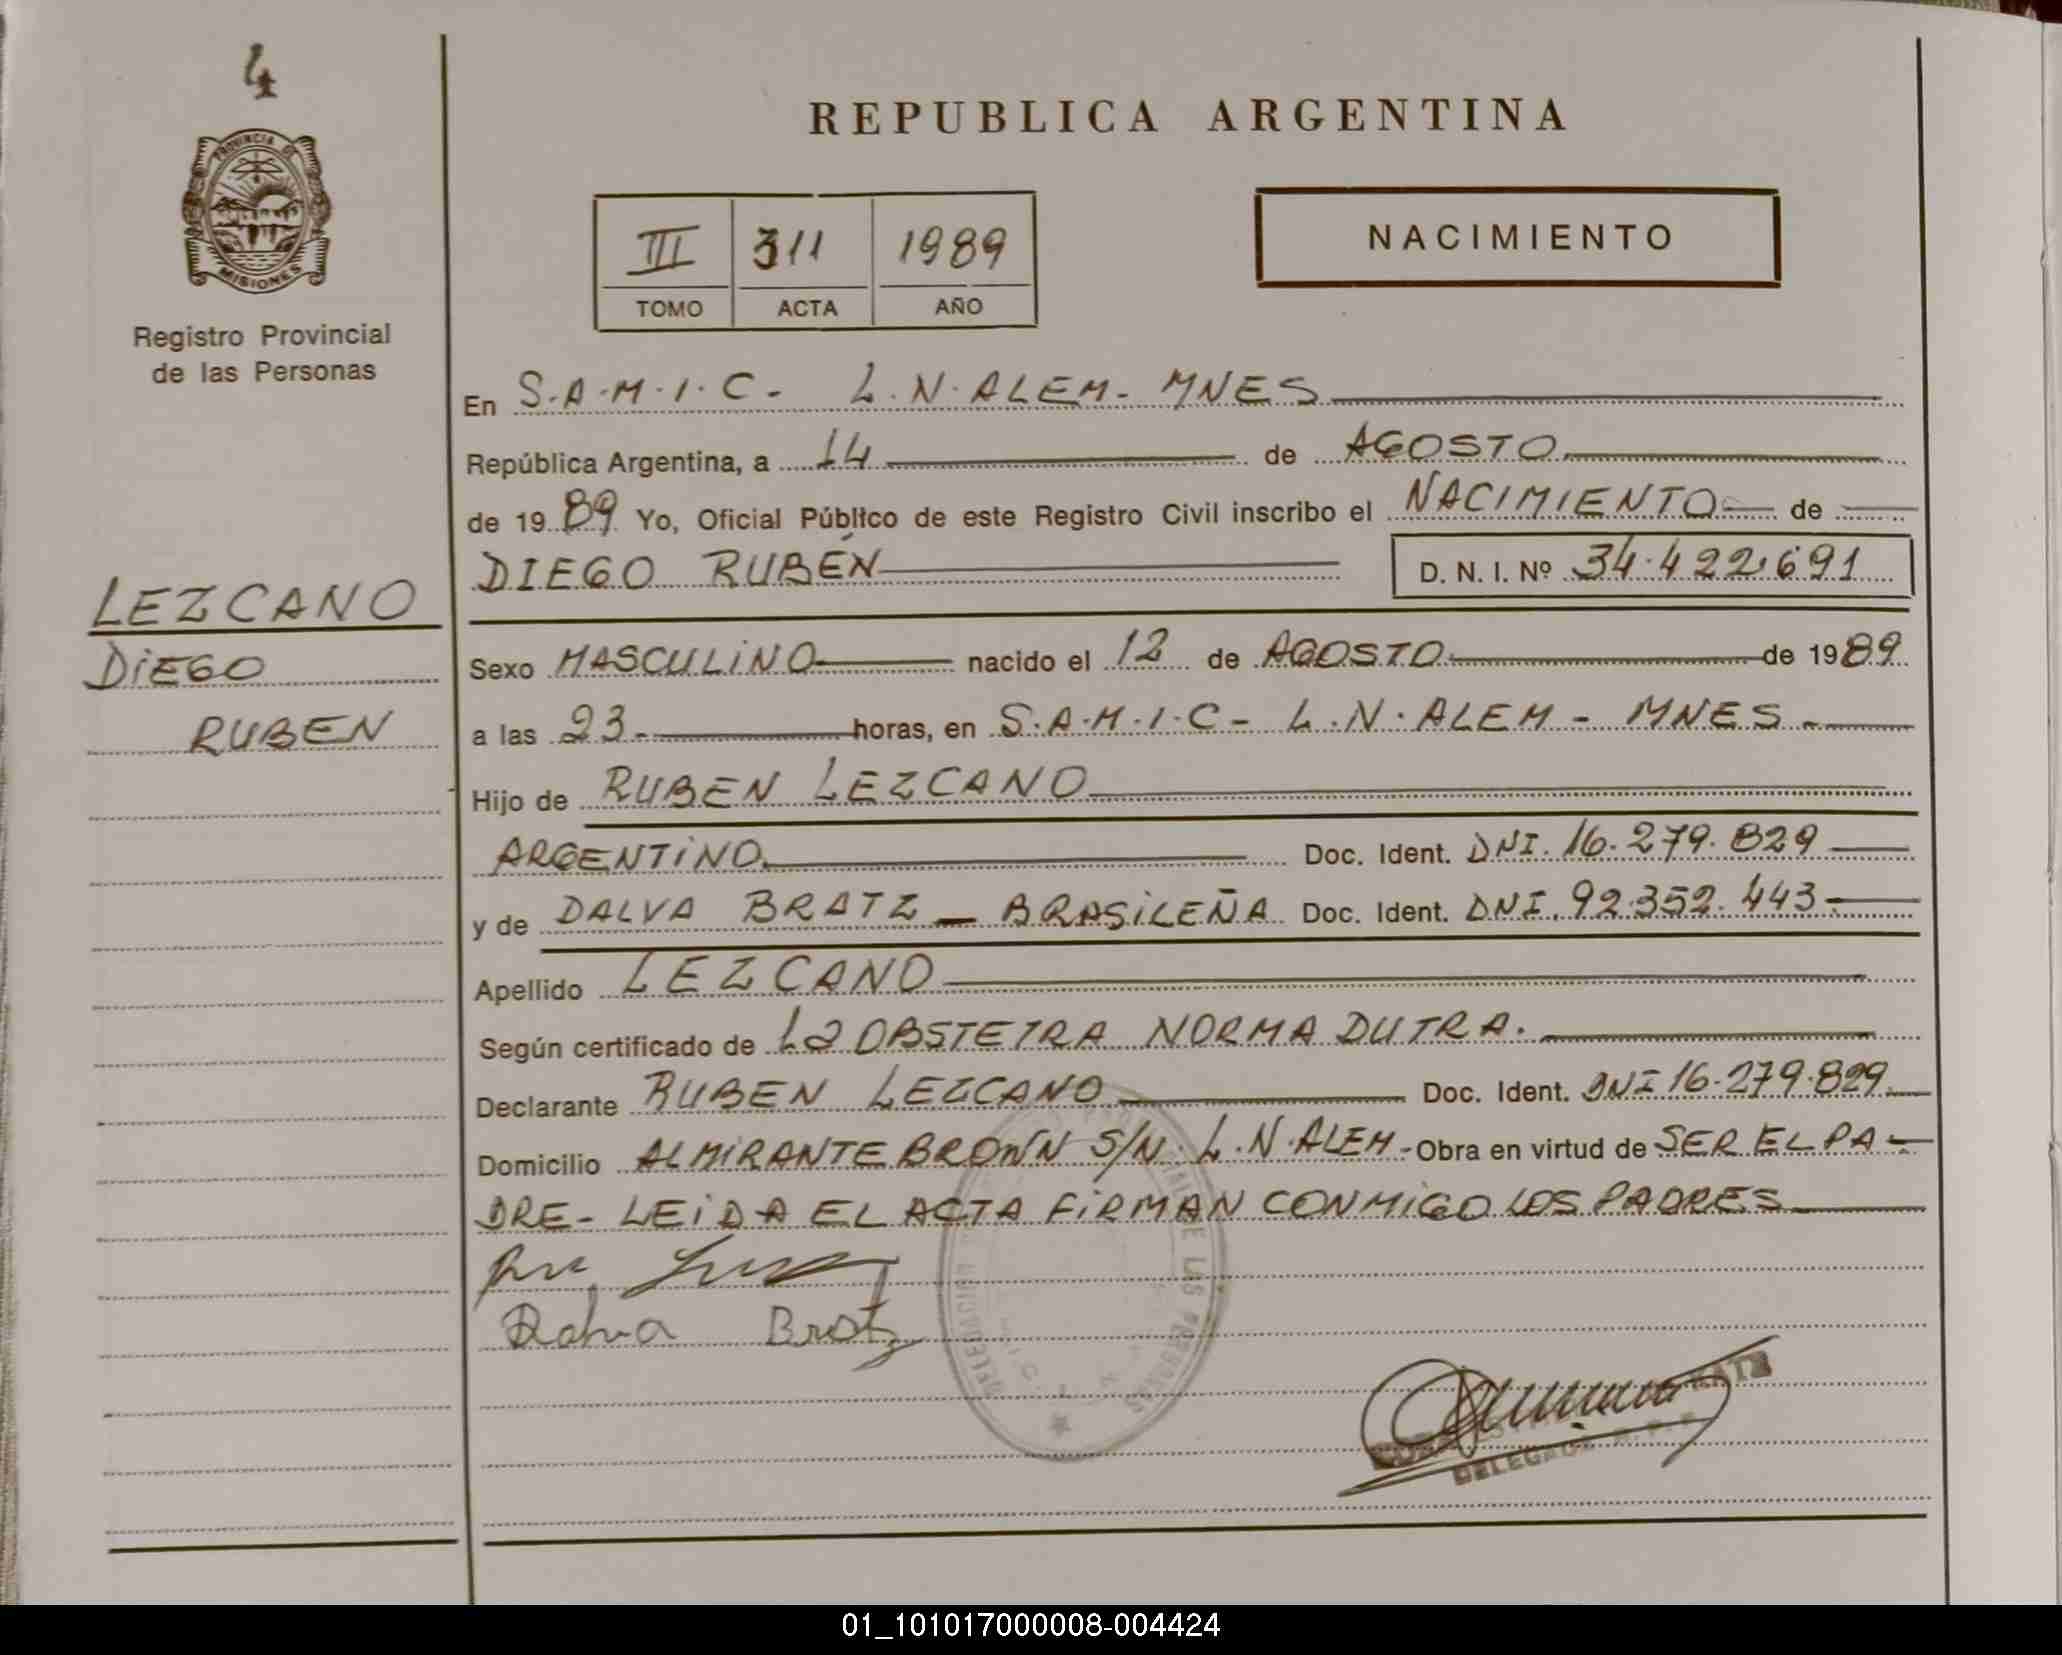 4
PROVINCIA DE
MISIONES
Registro Provincial
de las Personas
REPUBLICA ARGENTINA
III 311 1989
TOMO ACTA AÑO
NACIMIENTO
En S.A.M.I.C- L.N.ALEM- MNES
República Argentina, a 14 de AGOSTO
de 1989 Yo, Oficial Público de este Registro Civil inscribo el NACIMIENTO de
DIEGO RUBÉN D. N. I. Nº 34.422.691
LEZCANO
DiEGO
RUBEN
Sexo MASCULiNO nacido el 12 de AGOSTO de 1989
a las 23- horas, en S.A.M.I.C- L.N.ALEM - MNES -
Hijo de RUBEN LEZCANO
ARGENTiNO Doc. Ident. DNI. 16.279.829
y de DALVA BRATZ - BRASiLEÑA Doc. Ident. DNI. 92.352.443-
Apellido LEZCANO
Según certificado de La OBSTETRA NORMA DUTRA.
Declarante RUBEN LEZCANO Doc. Ident. DNI 16.279.829
Domicilio ALMiRANTE BROWN S/N. L.N.ALEM- Obra en virtud de SER EL PA-
DRE- LEiDA EL ACTA FiRMAN CONMiGO LOS PADRES
Dalva Bratz
DELEGACION DE LAS PERSONAS
DELEGADA
01_101017000008-004424